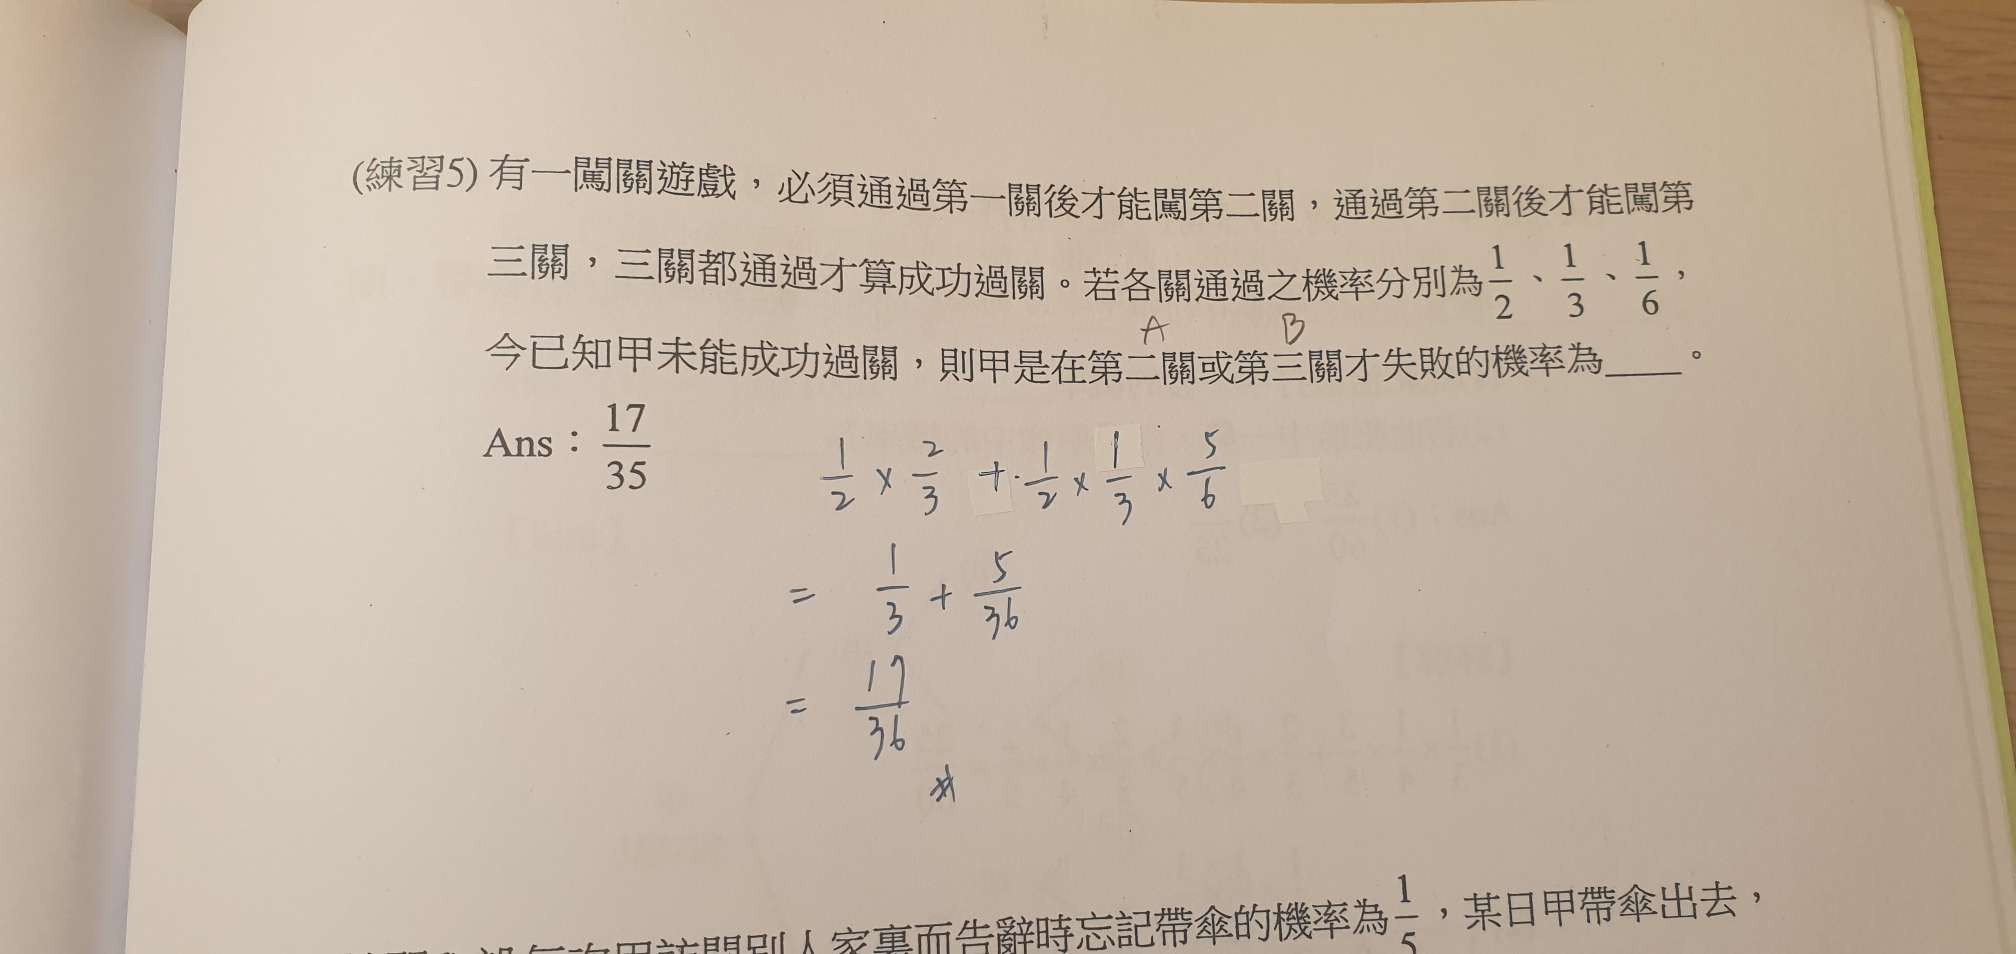 (練習5) 有一闖關遊戲，必須通過第一關後才能闖第二關，通過第二關後才能闖第
三關，三關都通過才算成功過關。若各關通過之機率分別為 1/2、1/3、1/6，
A B
今已知甲未能成功過關，則甲是在第二關或第三關才失敗的機率為____。
Ans：17/35
1/2 × 2/3 + 1/2 × 1/3 × 5/6
= 1/3 + 5/36
= 17/36
#
人家裏而告辭時忘記帶傘的機率為 1/5，某日甲帶傘出去，